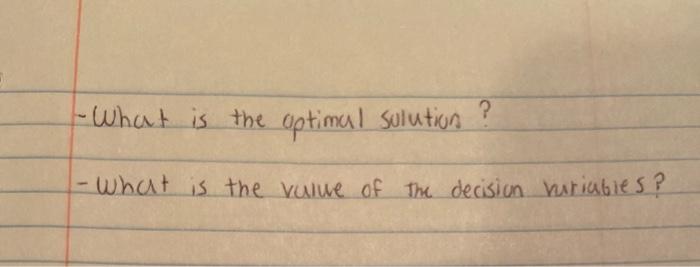 - What is the optimal solution?
- What is the value of the decision variables?